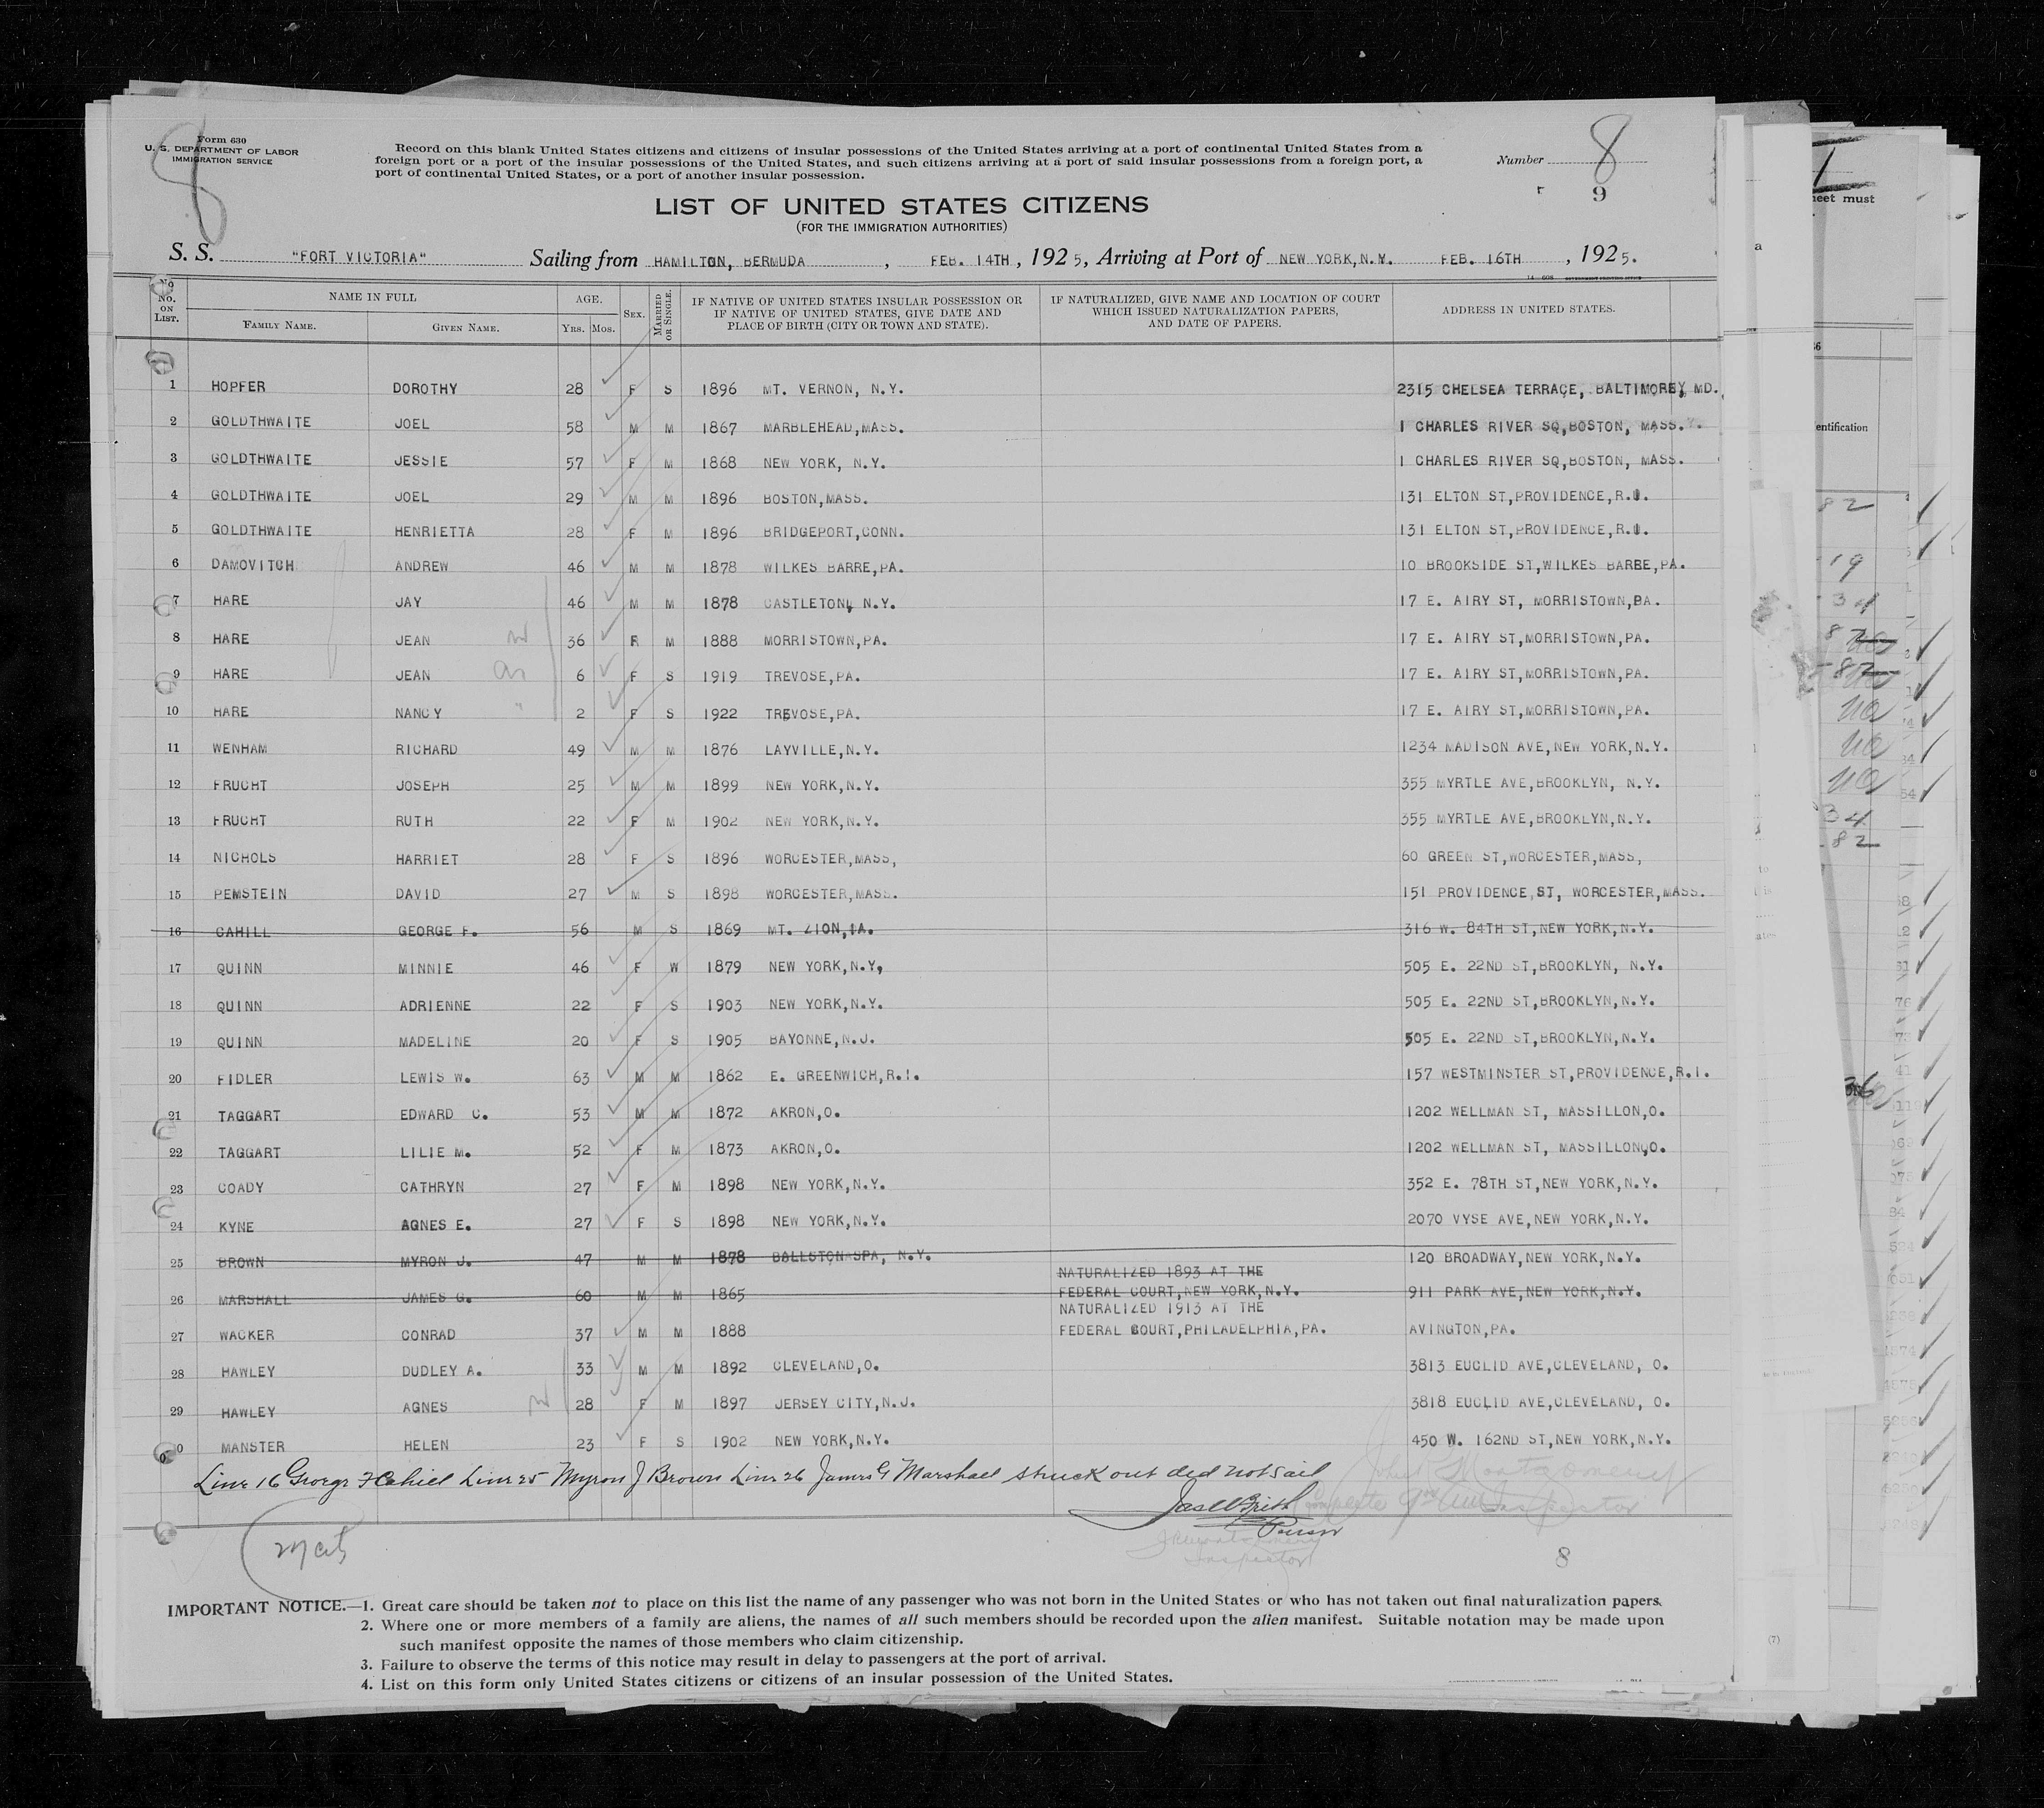 Form 630
U. S. DEPARTMENT OF LABOR
IMMIGRATION SERVICE
8
Record on this blank United States citizens and citizens of insular possessions of the United States arriving at a port of continental United States from a
foreign port or a port of the insular possessions of the United States, and such citizens arriving at a port of said insular possessions from a foreign port, a
port of continental United States, or a port of another insular possession.
Number 8
9
LIST OF UNITED STATES CITIZENS
(FOR THE IMMIGRATION AUTHORITIES)
S. S. "FORT VICTORIA" Sailing from HAMILTON, BERMUDA, FEB. 14TH, 1925, Arriving at Port of NEW YORK, N.Y. FEB. 16TH, 1925.
No. ON LIST. NAME IN FULL FAMILY NAME. GIVEN NAME. AGE. YRS. MOS. SEX. MARRIED OR SINGLE. IF NATIVE OF UNITED STATES INSULAR POSSESSION OR IF NATIVE OF UNITED STATES, GIVE DATE AND PLACE OF BIRTH (CITY OR TOWN AND STATE). IF NATURALIZED, GIVE NAME AND LOCATION OF COURT WHICH ISSUED NATURALIZATION PAPERS, AND DATE OF PAPERS. ADDRESS IN UNITED STATES.
1 HOPFER DOROTHY 28 F S 1896 MT. VERNON, N.Y. 2315 CHELSEA TERRACE, BALTIMORE, MD.
2 GOLDTHWAITE JOEL 58 M M 1867 MARBLEHEAD,MASS. 1 CHARLES RIVER SQ,BOSTON, MASS.
3 GOLDTHWAITE JESSIE 57 F M 1868 NEW YORK, N.Y. 1 CHARLES RIVER SQ,BOSTON, MASS.
4 GOLDTHWAITE JOEL 29 M M 1896 BOSTON,MASS. 131 ELTON ST,PROVIDENCE,R.I.
5 GOLDTHWAITE HENRIETTA 28 F M 1896 BRIDGEPORT,CONN. 131 ELTON ST,PROVIDENCE,R.I.
6 DAMOVITCH ANDREW 46 M M 1878 WILKES BARRE,PA. 10 BROOKSIDE ST,WILKES BARRE,PA.
7 HARE JAY 46 M M 1878 CASTLETON, N.Y. 17 E. AIRY ST, MORRISTOWN,PA.
8 HARE JEAN 36 F M 1888 MORRISTOWN,PA. 17 E. AIRY ST,MORRISTOWN,PA.
9 HARE JEAN 6 F S 1919 TREVOSE,PA. 17 E. AIRY ST,MORRISTOWN,PA.
10 HARE NANCY 2 F S 1922 TREVOSE,PA. 17 E. AIRY ST,MORRISTOWN,PA.
11 WENHAM RICHARD 49 M M 1876 LAYVILLE,N.Y. 1234 MADISON AVE,NEW YORK,N.Y.
12 FRUCHT JOSEPH 25 M M 1899 NEW YORK,N.Y. 355 MYRTLE AVE,BROOKLYN, N.Y.
13 FRUCHT RUTH 22 F M 1902 NEW YORK,N.Y. 355 MYRTLE AVE,BROOKLYN,N.Y.
14 NICHOLS HARRIET 28 F S 1896 WORCESTER,MASS, 60 GREEN ST,WORCESTER,MASS,
15 PEMSTEIN DAVID 27 M S 1898 WORCESTER,MASS. 151 PROVIDENCE ST, WORCESTER,MASS.
16 CAHILL GEORGE F. 56 M S 1869 MT. ZION,IA. 316 W. 84TH ST,NEW YORK,N.Y.
17 QUINN MINNIE 46 F W 1879 NEW YORK,N.Y, 505 E. 22ND ST,BROOKLYN, N.Y.
18 QUINN ADRIENNE 22 F S 1903 NEW YORK,N.Y. 505 E. 22ND ST,BROOKLYN,N.Y.
19 QUINN MADELINE 20 F S 1905 BAYONNE,N.J. 505 E. 22ND ST,BROOKLYN,N.Y.
20 FIDLER LEWIS W. 63 M M 1862 E. GREENWICH,R.I. 157 WESTMINSTER ST,PROVIDENCE,R.I.
21 TAGGART EDWARD C. 53 M M 1872 AKRON,O. 1202 WELLMAN ST, MASSILLON,O.
22 TAGGART LILIE M. 52 F M 1873 AKRON,O. 1202 WELLMAN ST, MASSILLON,O.
23 COADY CATHRYN 27 F M 1898 NEW YORK,N.Y. 352 E. 78TH ST,NEW YORK,N.Y.
24 KYNE AGNES E. 27 F S 1898 NEW YORK,N.Y. 2070 VYSE AVE,NEW YORK,N.Y.
25 BROWN MYRON J. 47 M M 1878 BALLSTON SPA, N.Y. 120 BROADWAY,NEW YORK,N.Y.
NATURALIZED 1893 AT THE
26 MARSHALL JAMES G. 60 M M 1865 FEDERAL COURT,NEW YORK,N.Y. 911 PARK AVE,NEW YORK,N.Y.
NATURALIZED 1913 AT THE
27 WACKER CONRAD 37 M M 1888 FEDERAL COURT,PHILADELPHIA,PA. AVINGTON,PA.
28 HAWLEY DUDLEY A. 33 M M 1892 CLEVELAND,O. 3813 EUCLID AVE,CLEVELAND, O.
29 HAWLEY AGNES 28 F M 1897 JERSEY CITY,N.J. 3818 EUCLID AVE,CLEVELAND, O.
0 MANSTER HELEN 23 F S 1902 NEW YORK,N.Y. 450 W. 162ND ST,NEW YORK,N.Y.
Line 16 George F Cahill Line 25 Myron J Brown Line 26 James G Marshall struck out did not sail
Purser
Inspector
8
IMPORTANT NOTICE.—1. Great care should be taken not to place on this list the name of any passenger who was not born in the United States or who has not taken out final naturalization papers.
2. Where one or more members of a family are aliens, the names of all such members should be recorded upon the alien manifest. Suitable notation may be made upon
such manifest opposite the names of those members who claim citizenship.
3. Failure to observe the terms of this notice may result in delay to passengers at the port of arrival.
4. List on this form only United States citizens or citizens of an insular possession of the United States.